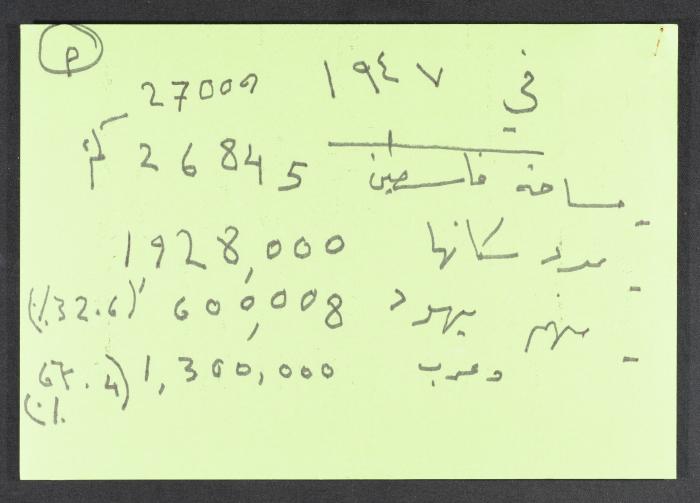 م
في ١٩٤٧
27000
- مساحة فلسطين 26845 كم²
- عدد سكانها 1,928,000
منهم يهود 600,008 (32.6٪)
- وعرب 1,300,000 (67.4٪)